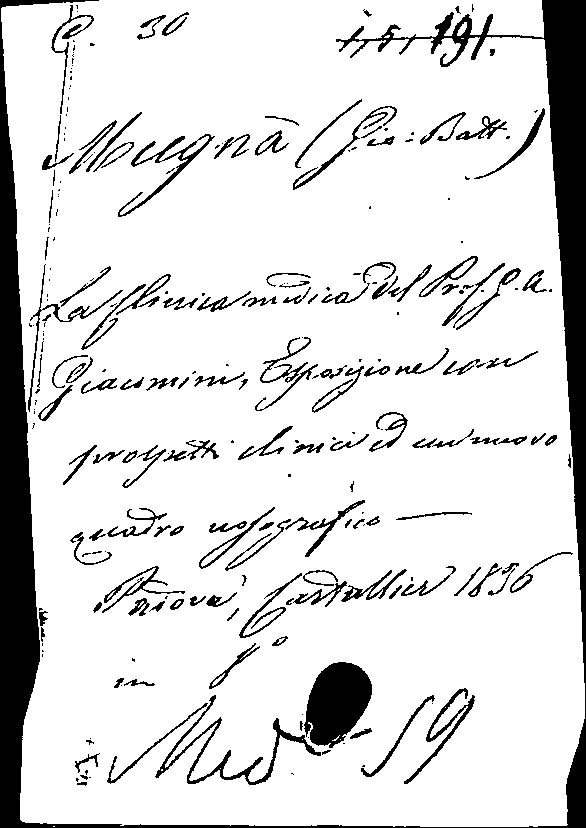 C. 30 1,5, 191.
Mugnà (Gio: Batt.)
La Clinica medica del Prof. G. A.
Giacomini, Esposizione con
prospetti clinici ed un nuovo
quadro nosografico —
Padova, Cartallier 1836
in 8º
Med - 59